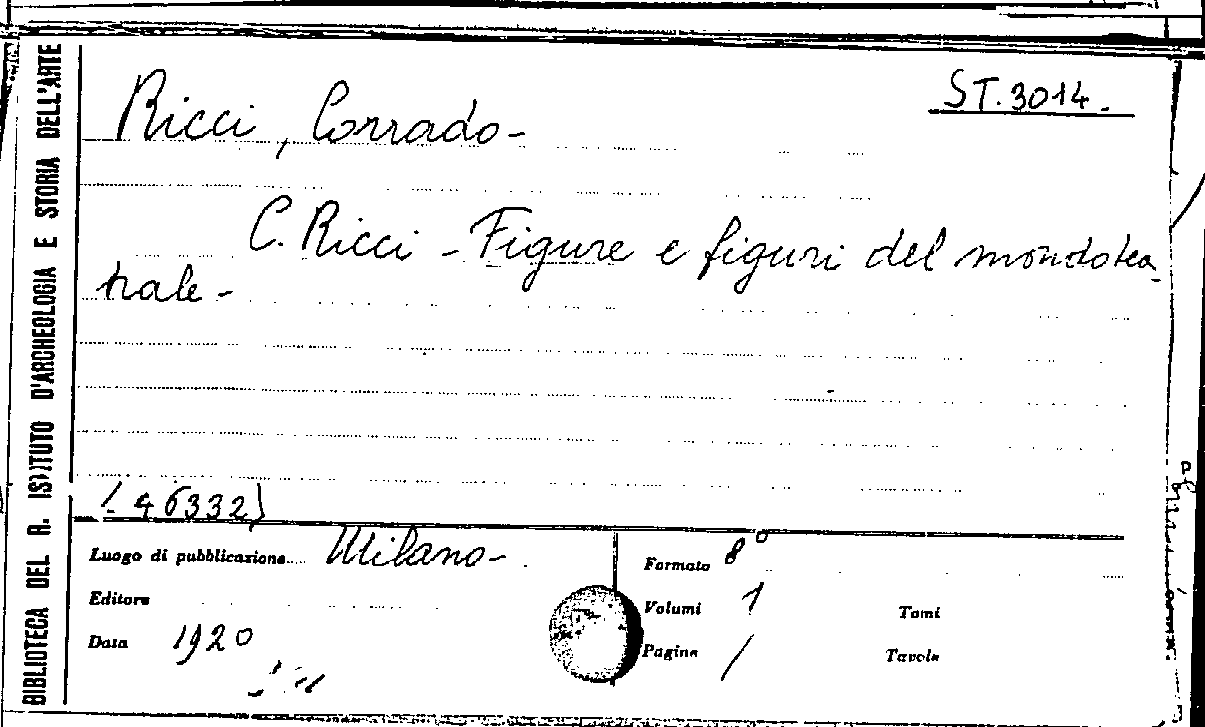 BIBLIOTECA DEL R. ISTITUTO D'ARCHEOLOGIA E STORIA DELL'ARTE
ST. 3014.
Ricci, Corrado-
C. Ricci - Figure e figuri del mondo tea
trale -
(46332)
Luogo di pubblicazione Milano-
Editore
Data 1920
Formato 8°
Volumi 1
Tomi
Pagine /
Tavole